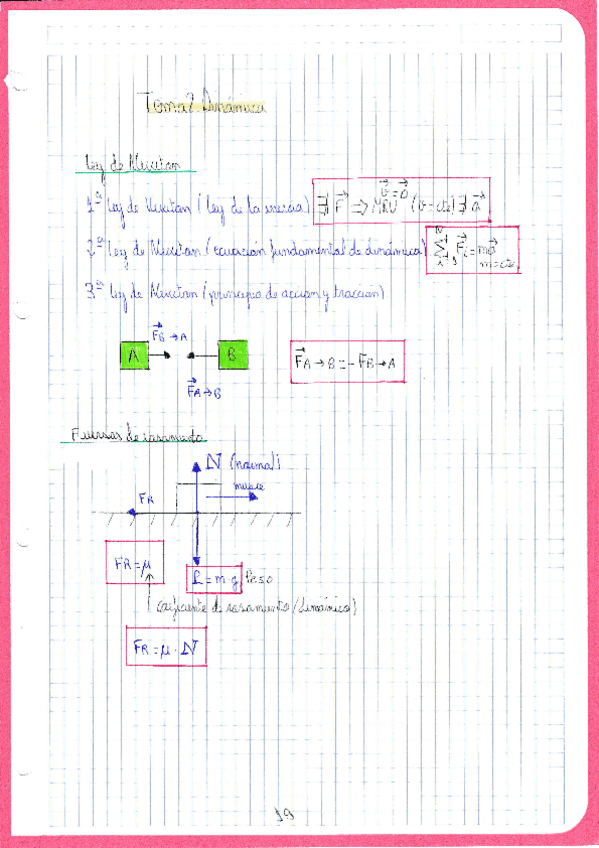 Tema 2 Dinámica
Ley de Newton
1ª Ley de Newton (ley de la inercia) ∄ F⃗ ⇒ MRU (v = cte) ∄ a⃗
v⃗ = 0
2ª Ley de Newton (ecuación fundamental de dinámica) Σ F⃗i = ma⃗
m = cte
3ª Ley de Newton (principio de acción y tracción)
F⃗B → A
A
B
F⃗A → B = - F⃗B → A
F⃗A → B
Fuerzas de rozamiento
N (normal)
mueve
FR
FR = μ
P = m·g Peso
coeficiente de rozamiento (dinámico)
FR = μ · N
19